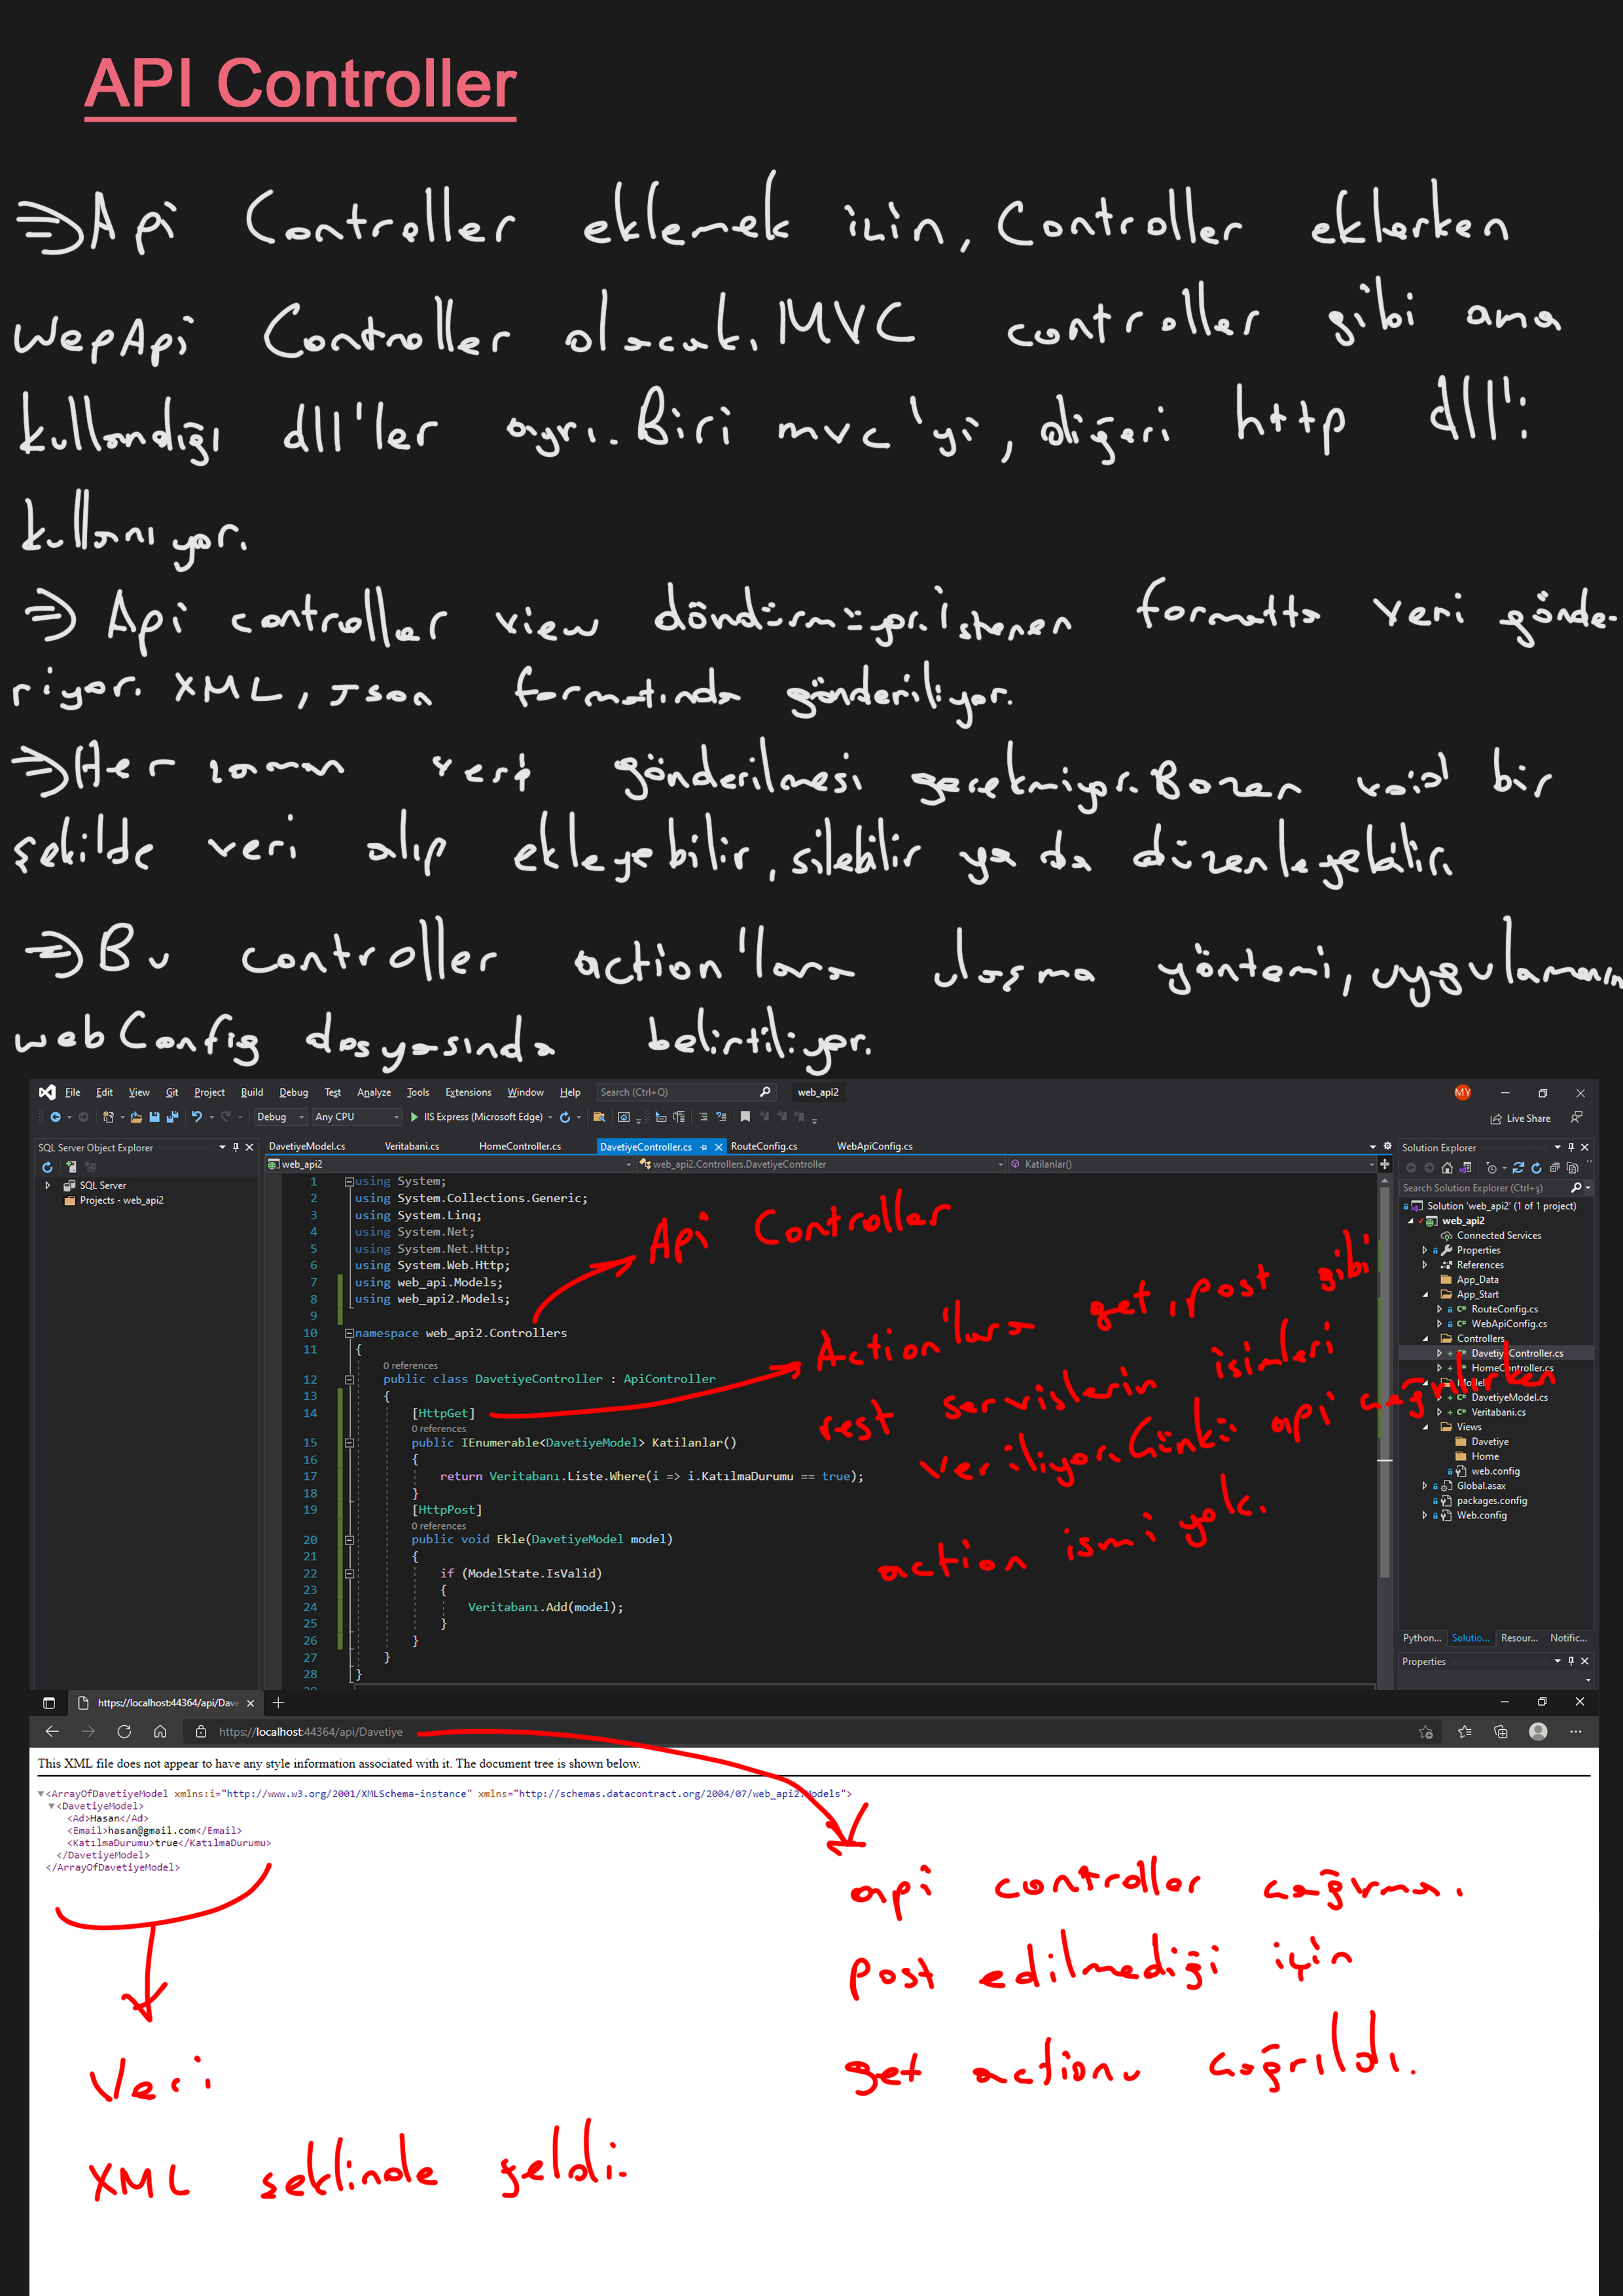 API Controller
⇒ Api Controller eklemek için, Controller eklerken
WepApi Controller olacak. MVC controller gibi ama
kullandığı dll'ler ayrı. Biri mvc'yi, diğeri http dll'i
kullanıyor.
⇒ Api controller view döndürmüyor. İstenen formatta veri gönde-
riyor. XML, Json formatında gönderiliyor.
⇒ Her zaman veri gönderilmesi gerekmiyor. Bazen void bir
şekilde veri alıp ekleyebilir, silebilir ya da düzenleyebilir.
⇒ Bu controller action'lara ulaşma yöntemi, uygulamanın
webConfig dosyasında belirtiliyor.
File Edit View Git Project Build Debug Test Analyze Tools Extensions Window Help Search (Ctrl+Q) web_api2 MY
Debug Any CPU IIS Express (Microsoft Edge) Live Share
SQL Server Object Explorer
SQL Server
Projects - web_api2
DavetiyeModel.cs Veritabani.cs HomeController.cs DavetiyeController.cs RouteConfig.cs WebApiConfig.cs
web_api2 web_api2.Controllers.DavetiyeController Katilanlar()
1 using System;
2 using System.Collections.Generic;
3 using System.Linq;
4 using System.Net;
5 using System.Net.Http;
6 using System.Web.Http;
7 using web_api.Models;
8 using web_api2.Models;
9
10 namespace web_api2.Controllers
11 {
0 references
12 public class DavetiyeController : ApiController
13 {
14 [HttpGet]
0 references
15 public IEnumerable<DavetiyeModel> Katilanlar()
16 {
17 return Veritabanı.Liste.Where(i => i.KatılmaDurumu == true);
18 }
19 [HttpPost]
0 references
20 public void Ekle(DavetiyeModel model)
21 {
22 if (ModelState.IsValid)
23 {
24 Veritabanı.Add(model);
25 }
26 }
27 }
28 }
Api Controller
Action'lara get, post gibi
rest servislerin isimleri
veriliyor. Çünkü api çağrılırken
action ismi yok.
Solution Explorer
Search Solution Explorer (Ctrl+ş)
Solution 'web_api2' (1 of 1 project)
web_api2
Connected Services
Properties
References
App_Data
App_Start
RouteConfig.cs
WebApiConfig.cs
Controllers
DavetiyeController.cs
HomeController.cs
Model
DavetiyeModel.cs
Veritabani.cs
Views
Davetiye
Home
web.config
Global.asax
packages.config
Web.config
Python... Solutio... Resour... Notific...
Properties
https://localhost:44364/api/Dave
https://localhost:44364/api/Davetiye
This XML file does not appear to have any style information associated with it. The document tree is shown below.
<ArrayOfDavetiyeModel xmlns:i="http://www.w3.org/2001/XMLSchema-instance" xmlns="http://schemas.datacontract.org/2004/07/web_api2.Models">
<DavetiyeModel>
<Ad>Hasan</Ad>
<Email>hasan@gmail.com</Email>
<KatılmaDurumu>true</KatılmaDurumu>
</DavetiyeModel>
</ArrayOfDavetiyeModel>
api controller çağırma.
post edilmediği için
get actionu çağrıldı.
Veri
XML şeklinde geldi.